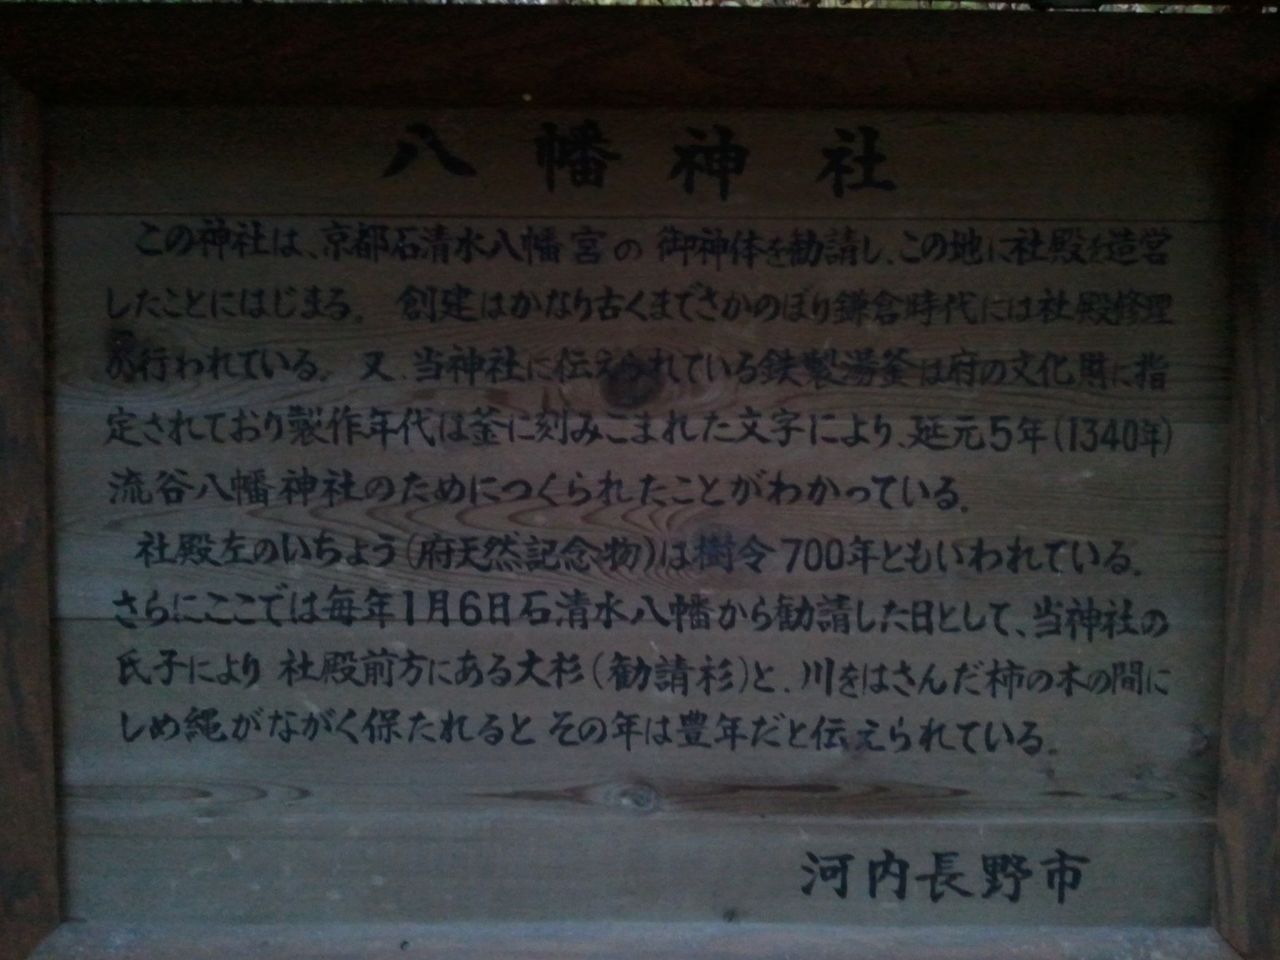 八幡神社
この神社は、京都石清水八幡宮の御神体を勧請し、この地に社殿を造営
したことにはじまる。創建はかなり古くまでさかのぼり鎌倉時代には社殿修理
が行われている。又、当神社に伝えられている鉄製湯釜は府の文化財に指
定されており製作年代は釜に刻みこまれた文字により、延元5年(1340年)
流谷八幡神社のためにつくられたことがわかっている。
社殿左のいちょう(府天然記念物)は樹令700年ともいわれている。
さらにここでは毎年1月6日石清水八幡から勧請した日として、当神社の
氏子により社殿前方にある大杉(勧請杉)と、川をはさんだ柿の木の間に
しめ縄がながく保たれるとその年は豊年だと伝えられている。
河内長野市